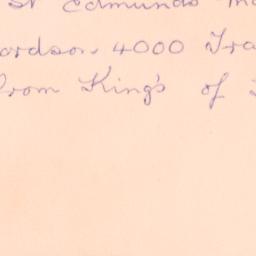 St Edmunds
ardson. 4000 Tra
from King's of